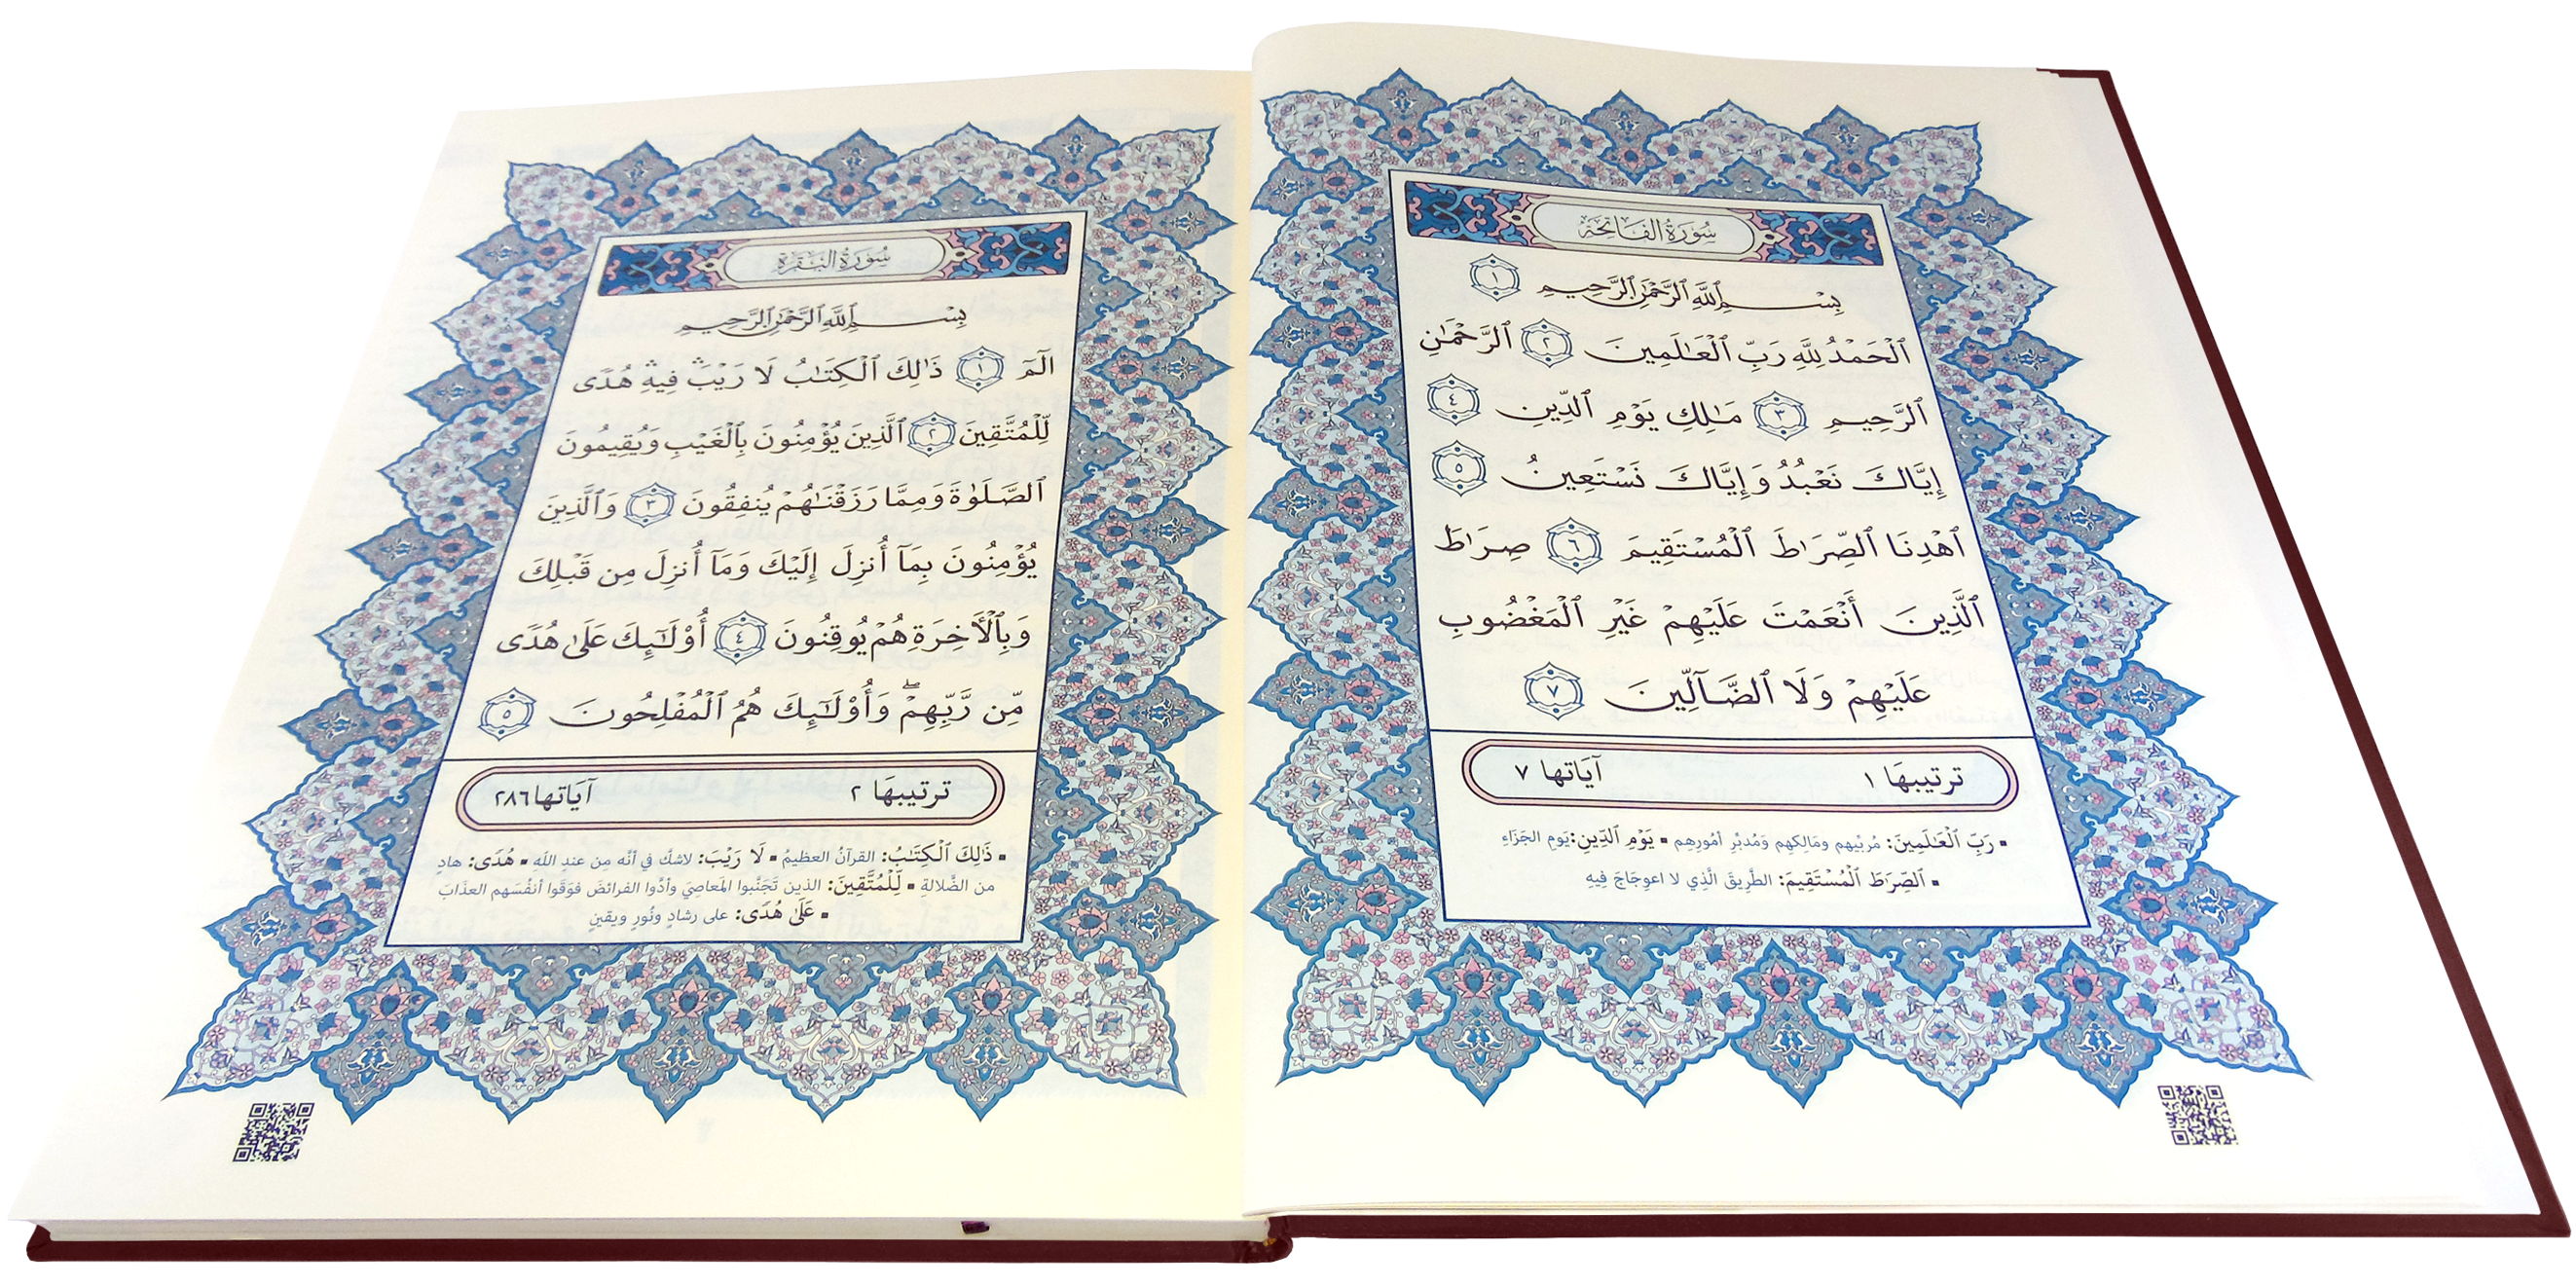 سُورَةُ الفَاتِحَة
بِسْمِ ٱللَّهِ ٱلرَّحْمَٰنِ ٱلرَّحِيمِ ١
ٱلْحَمْدُ لِلَّهِ رَبِّ ٱلْعَـٰلَمِينَ ٢ ٱلرَّحْمَـٰنِ
ٱلرَّحِيمِ ٣ مَـٰلِكِ يَوْمِ ٱلدِّينِ ٤
إِيَّاكَ نَعْبُدُ وَإِيَّاكَ نَسْتَعِينُ ٥
ٱهْدِنَا ٱلصِّرَٰطَ ٱلْمُسْتَقِيمَ ٦ صِرَٰطَ
ٱلَّذِينَ أَنْعَمْتَ عَلَيْهِمْ غَيْرِ ٱلْمَغْضُوبِ
عَلَيْهِمْ وَلَا ٱلضَّآلِّينَ ٧
ترتيبهَا ١ آيَاتها ٧
▪ رَبِّ ٱلْعَـٰلَمِينَ: مُربِّيهِم ومَالِكِهِم وَمُدبِّرِ أمُورِهِم ▪ يَوْمِ ٱلدِّينِ: يَومِ الجَزَاءِ
▪ ٱلصِّرَٰطَ ٱلْمُسْتَقِيمَ: الطَّرِيقَ الَّذِي لا اعوِجَاجَ فِيهِ
سُورَةُ البَقَرَةِ
بِسْمِ ٱللَّهِ ٱلرَّحْمَٰنِ ٱلرَّحِيمِ
الٓمٓ ١ ذَٰلِكَ ٱلْكِتَـٰبُ لَا رَيْبَ ۛ فِيهِ ۛ هُدًى
لِّلْمُتَّقِينَ ٢ ٱلَّذِينَ يُؤْمِنُونَ بِٱلْغَيْبِ وَيُقِيمُونَ
ٱلصَّلَوٰةَ وَمِمَّا رَزَقْنَـٰهُمْ يُنفِقُونَ ٣ وَٱلَّذِينَ
يُؤْمِنُونَ بِمَآ أُنزِلَ إِلَيْكَ وَمَآ أُنزِلَ مِن قَبْلِكَ
وَبِٱلْأَخِرَةِ هُمْ يُوقِنُونَ ٤ أُوْلَـٰٓئِكَ عَلَىٰ هُدًى
مِّن رَّبِّهِمْ ۖ وَأُوْلَـٰٓئِكَ هُمُ ٱلْمُفْلِحُونَ ٥
ترتيبهَا ٢ آيَاتها ٢٨٦
▪ ذَٰلِكَ ٱلْكِتَـٰبُ: القرآنُ العظيمُ ▪ لَا رَيْبَ: لاشكَّ في أنَّه مِن عندِ اللَهِ ▪ هُدًى: هادٍ
من الضَّلالةِ ▪ لِّلْمُتَّقِينَ: الذين تَجَنَّبوا المَعاصِيَ وأدَّوا الفرائضَ فوَقَوا أنفُسَهم العذَابَ
▪ عَلَىٰ هُدًى: على رشادٍ ونُورٍ ويقينٍ